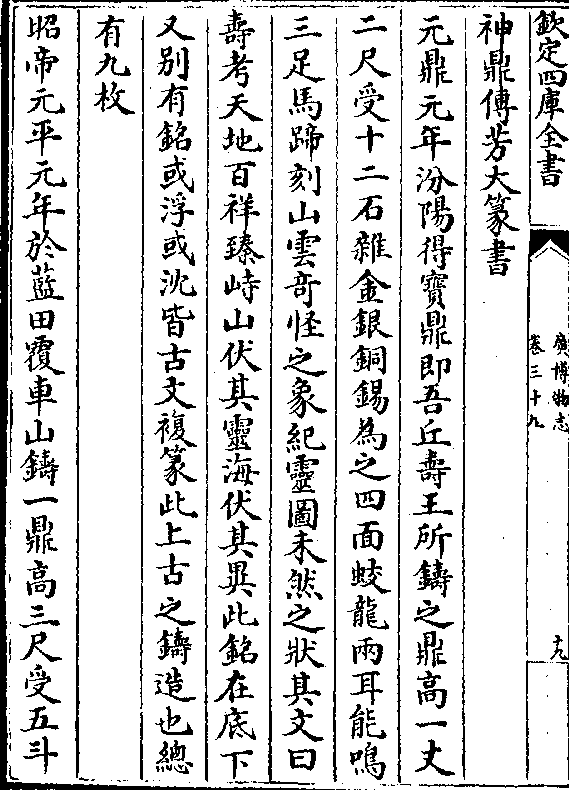 欽定四庫全書
廣博物志
卷三十九
十九
神鼎傳芳大篆書
元鼎元年汾陽得寶鼎即吾丘壽王所鑄之鼎高一丈
二尺受十二石雜金銀銅錫為之四面蛟龍兩耳能鳴
三足馬蹄刻山雲奇怪之象紀靈圖未然之狀其文曰
壽考天地百祥臻峙山伏其靈海伏其異此銘在底下
又別有銘或浮或沈皆古文複篆此上古之鑄造也總
有九枚
昭帝元平元年於藍田覆車山鑄一鼎高三尺受五斗